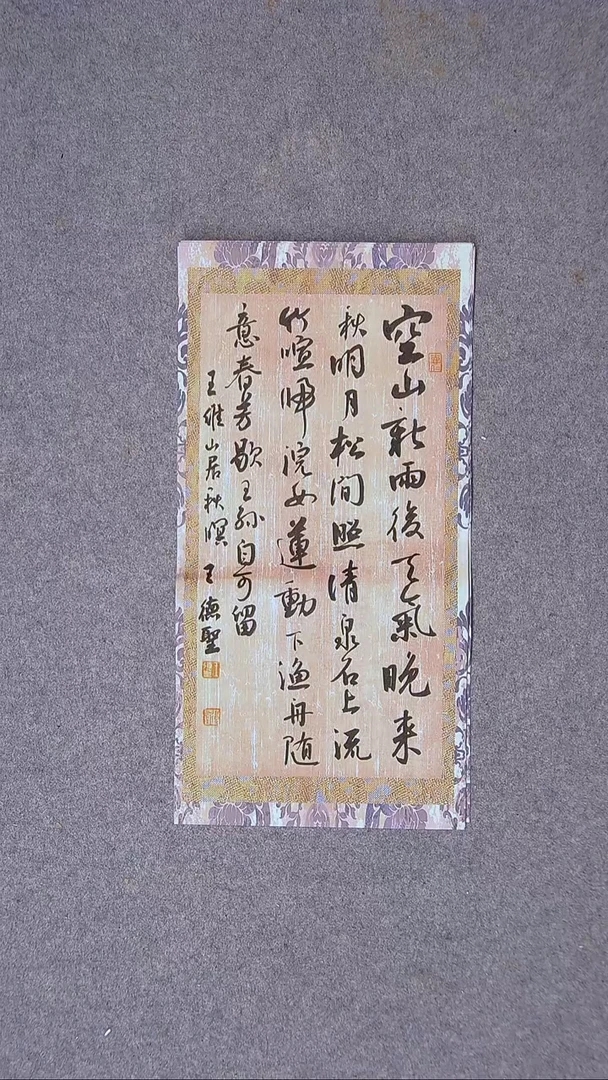 空山新雨後天氣晚来
秋明月松间照清泉石上流
竹喧归浣女蓮動下渔舟随
意春芳歇王孙自可留
王维山居秋暝 王德聖